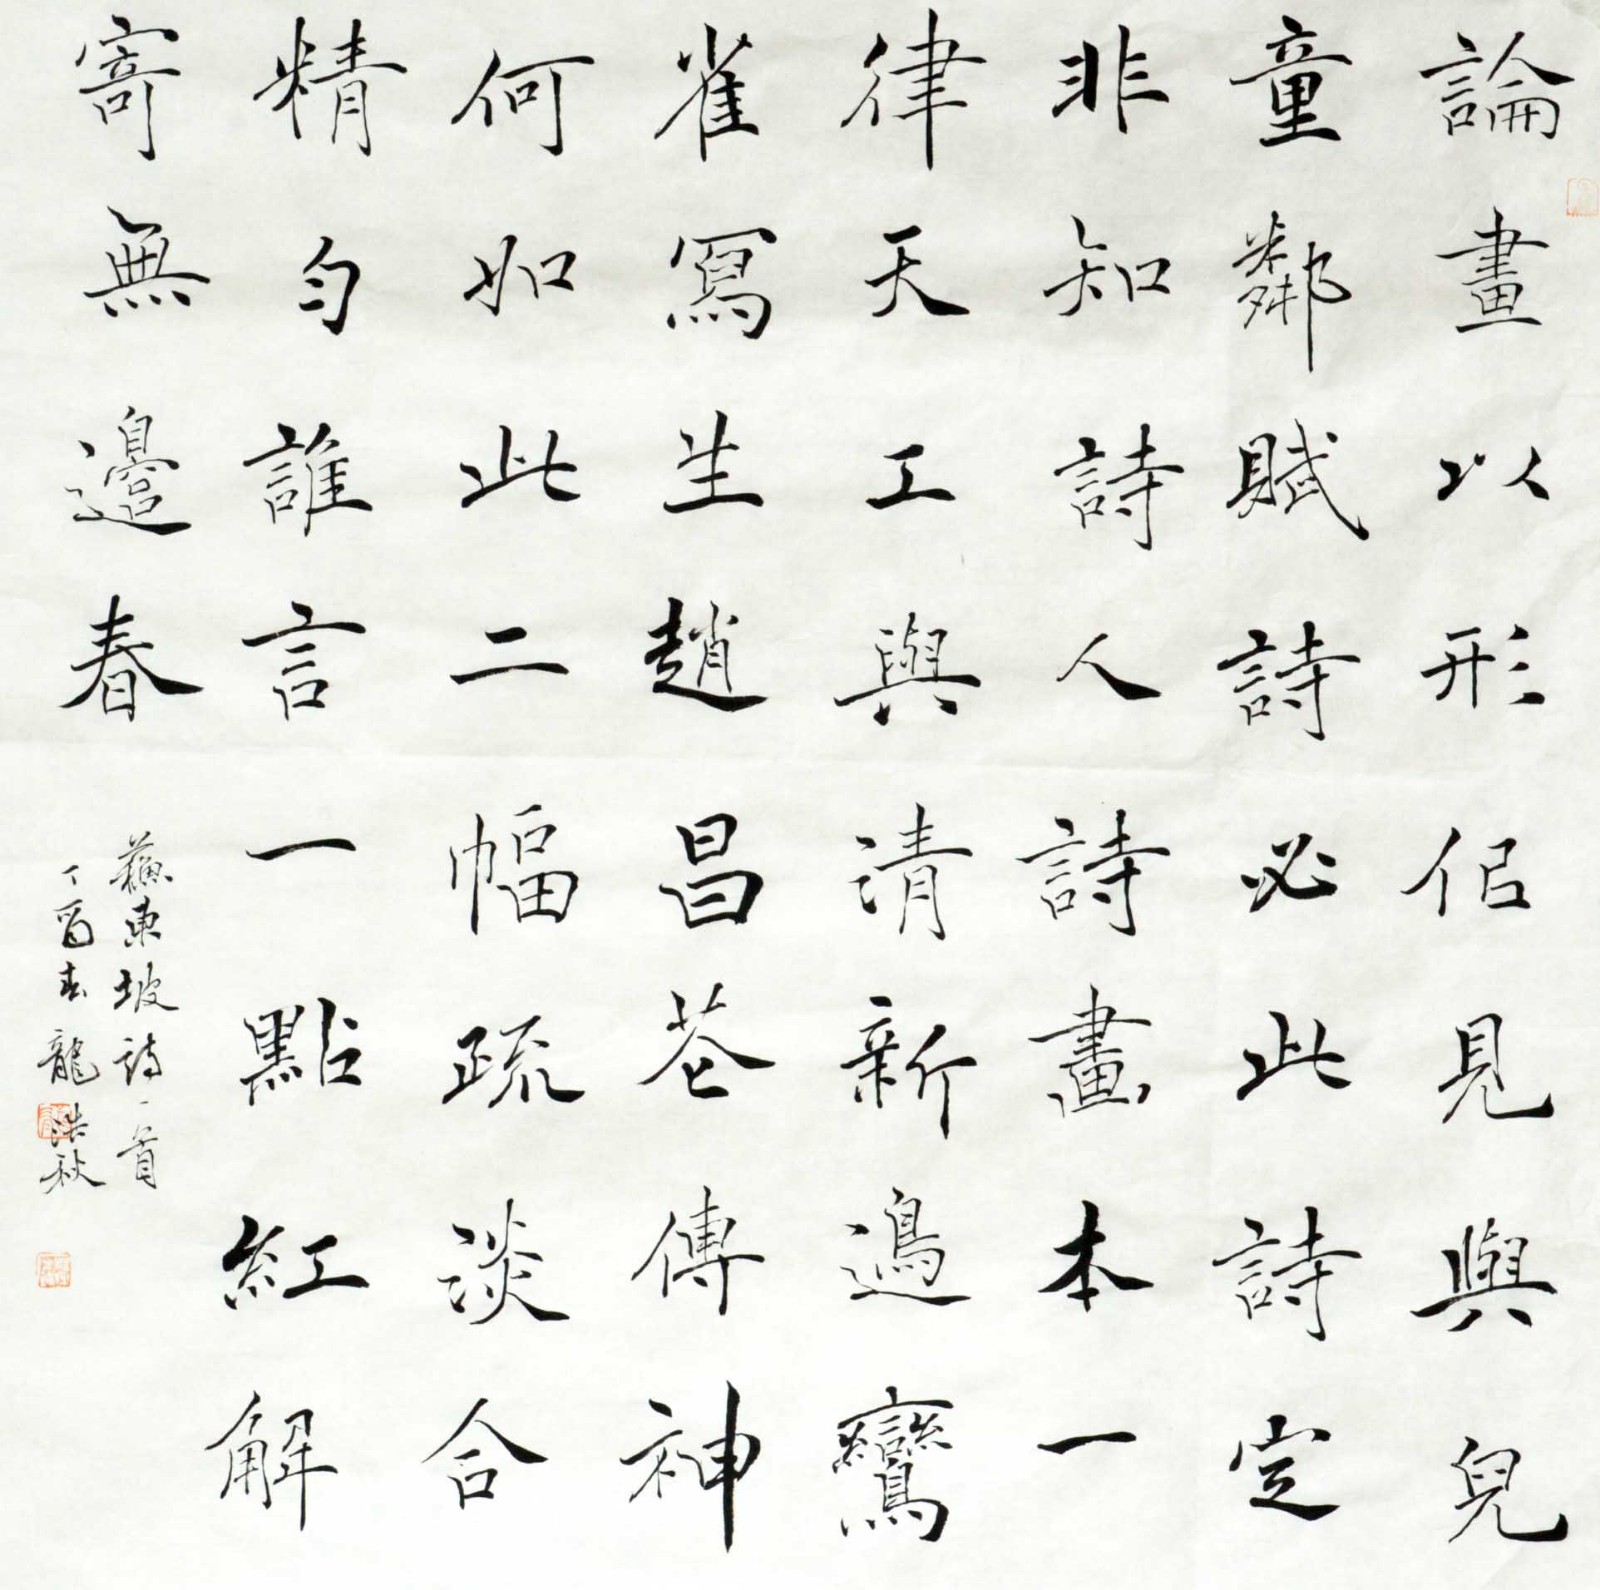 論畫以形佀見與兒
童鄰賦詩必此詩定
非知詩人詩畫本一
律天工與清新邊鸞
雀冩生趙昌花傳神
何如此二幅疏淡合
精勻誰言一點紅解
寄無邊春
蘇東坡詩一首
丁酉春龍洪秋